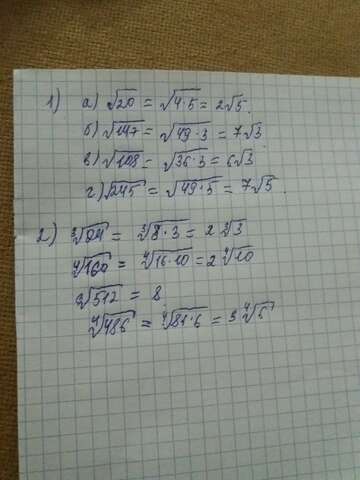 1) а) √20 = √4·5 = 2√5.
б) √147 = √49·3 = 7√3
в) √108 = √36·3 = 6√3
г) √245 = √49·5 = 7√5.
2) ∛24 = ∛8·3 = 2∛3
∜160 = ∜16·10 = 2∜10
∛512 = 8
∜486 = ∜81·6 = 3∜6